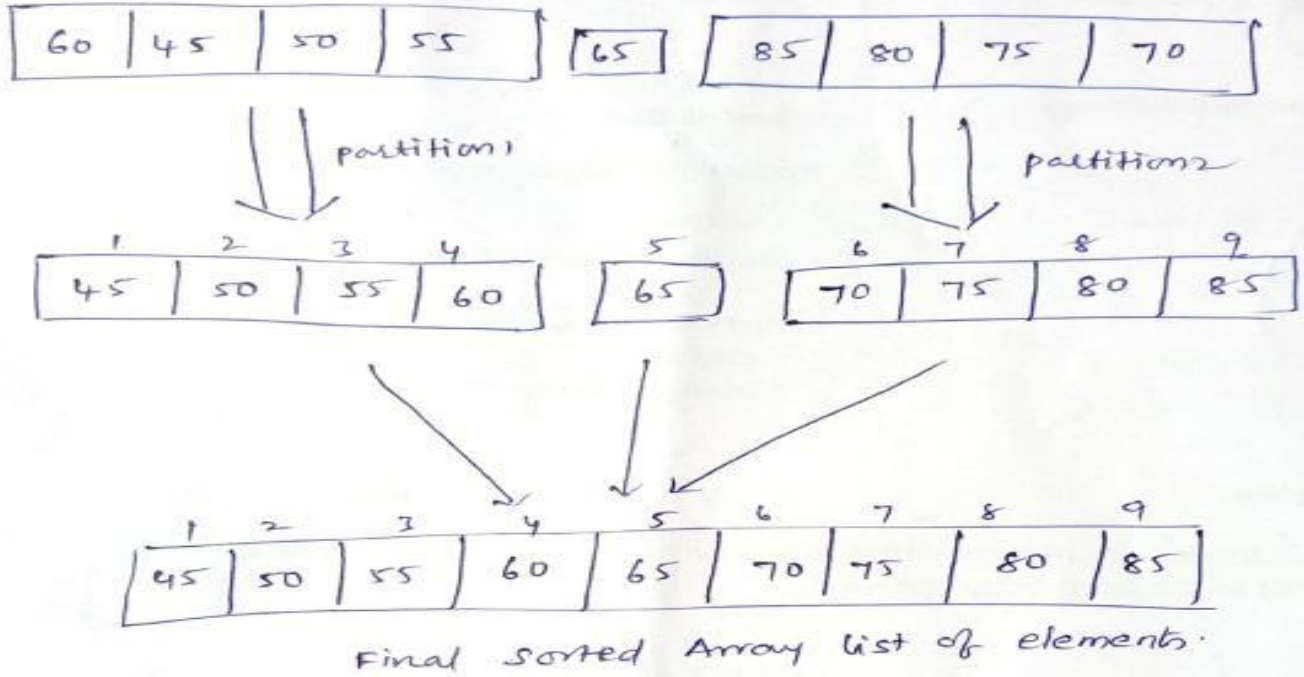 60 45 50 55 65 85 80 75 70
partition1 partition2
1 2 3 4 5 6 7 8 9
45 50 55 60 65 70 75 80 85
1 2 3 4 5 6 7 8 9
45 50 55 60 65 70 75 80 85
Final sorted Array list of elements.